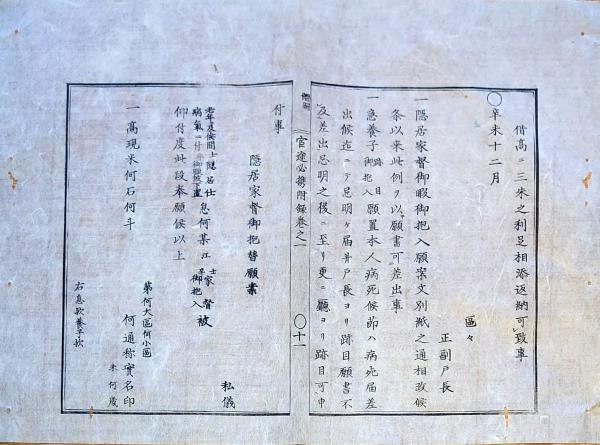 借高ニ三朱之利足相添返納可致事
〇辛未十二月
區々
正副戸長
一隠居家督御暇御抱入願案文別紙之通相改候
条以来此例ヲ以願書可差出事
一息養子跡目御抱入願置本人病死候節ハ病死届差
出候迄ニテ忌明ケ届并戸長ヨリ跡目願書不
及差出忌明之後ニ至リ更ニ聽ヨリ跡目可申
官途必携附録巻之一
〇十一
付事
隠居家督御抱替願案
私儀
老年及候間士隠居仕
病氣ニ付
息何某江士家督被
卒御抱入
仰付度此段奉願候以上
第何大區何小區
何通称實名印
未何歳
一高現米何石何斗
右息歟養子歟